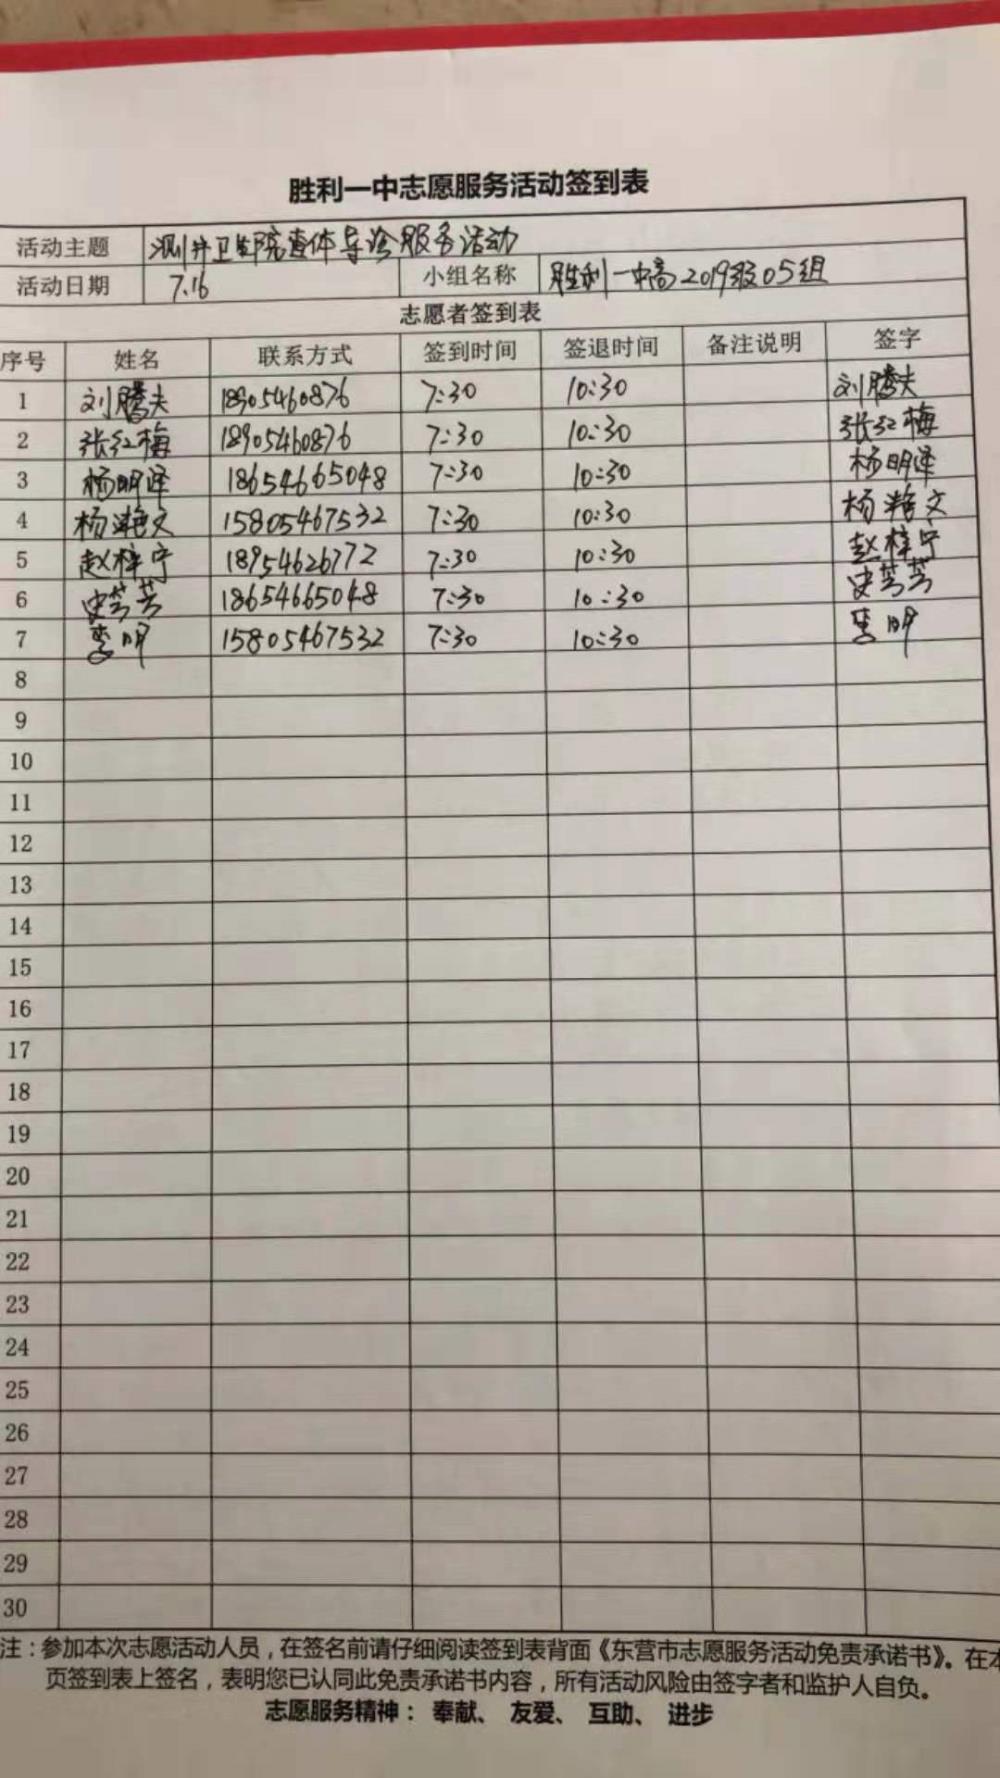 胜利一中志愿服务活动签到表
活动主题 测井卫生院查体导诊服务活动
活动日期 7.16 小组名称 胜利一中高2019级05组
志愿者签到表
序号 姓名 联系方式 签到时间 签退时间 备注说明 签字
1 刘腾夫 18905460876 7:30 10:30 刘腾夫
2 张红梅 18905460876 7:30 10:30 张红梅
3 杨明泽 18654665048 7:30 10:30 杨明泽
4 杨滟文 15805467532 7:30 10:30 杨滟文
5 赵梓宁 18954626772 7:30 10:30 赵梓宁
6 史芳芳 18654665048 7:30 10:30 史芳芳
7 李明 15805467532 7:30 10:30 李明
8
9
10
11
12
13
14
15
16
17
18
19
20
21
22
23
24
25
26
27
28
29
30
注：参加本次志愿活动人员，在签名前请仔细阅读签到表背面《东营市志愿服务活动免责承诺书》。在本
页签到表上签名，表明您已认同此免责承诺书内容，所有活动风险由签字者和监护人自负。
志愿服务精神： 奉献、 友爱、 互助、 进步